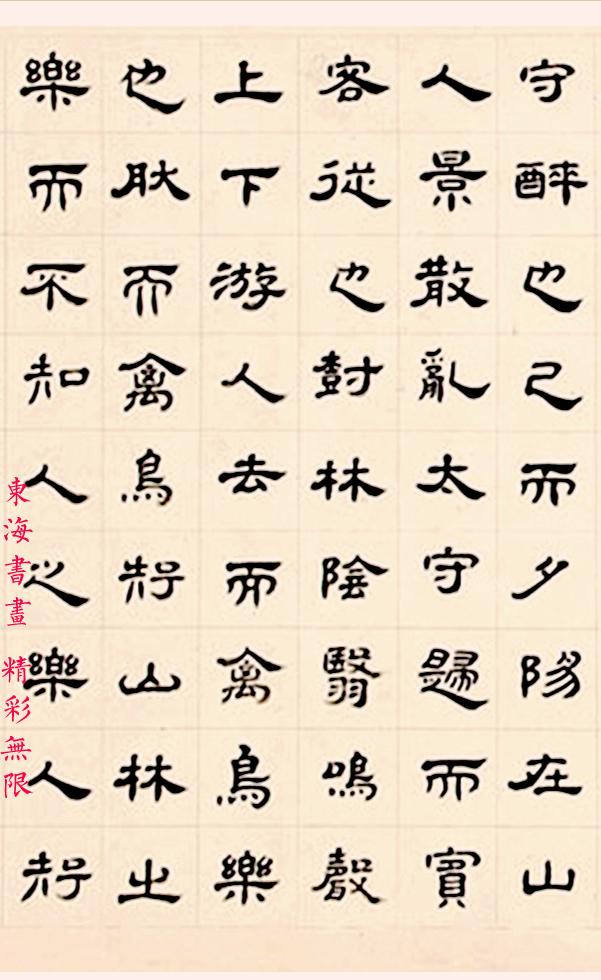 守醉也已而夕陽在山
人景散亂太守歸而賓
客從也尌林陰翳鳴聲
上下游人去而禽鳥樂
也肰而禽鳥知山林之
樂而不知人之樂人知
東海書畫 精彩無限